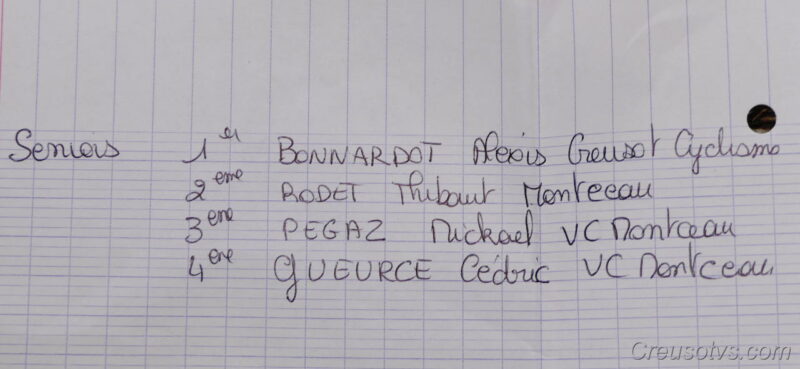 Seniors 1er BONNARDOT Alexis Creusot Cyclisme
2eme RODET Thibaut Montceau
3eme PEGAZ Mickael VC Montceau
4eme GUEURCE Cédric VC Montceau
Creusotvs.com